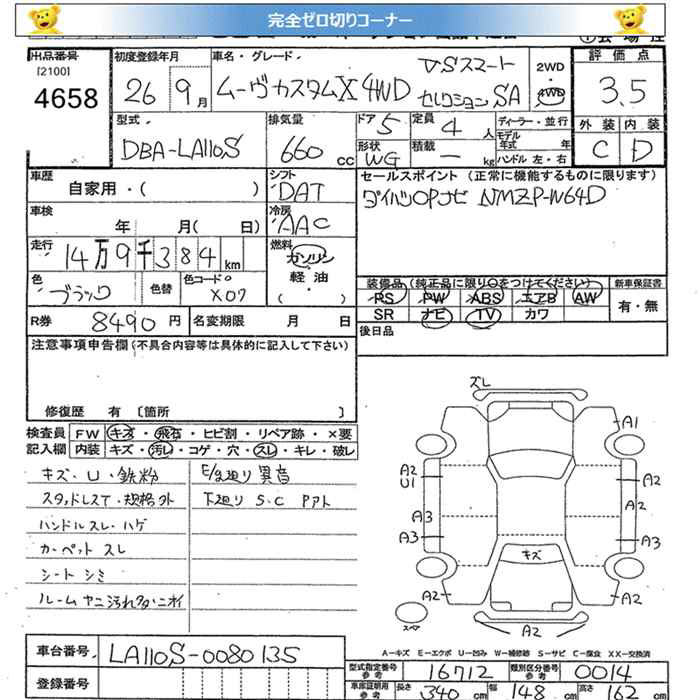 完全ゼロ切りコーナー
出品番号 初度登録年月 車名・グレード 評価点
[2100]
4658 26年9月 ムーヴカスタムX 4WD VSスマート セレクションSA 2WD・4WD 3.5
型式 排気量 ドア 5 定員 4人 ディーラー・並行 外装 内装
DBA-LA110S 660cc 形状 WG 積載 ー kg モデル年式 年 ハンドル 左・右 C D
車歴 シフト セールスポイント(正常に機能するものに限ります)
自家用・( ) DAT ダイハツOPナビ NMZP-W64D
車検 年 月( 日) 冷房 AAC
走行 14万9千384km 燃料 ガソリン 軽油 ( )
色 ブラック 色替 色コード X07
装備品(純正品に限り○をつけてください) 新車保証書
PS PW ABS エアB AW 有・無
SR ナビ TV カワ
R券 8490円 名変期限 月 日 後日品
注意事項申告欄(不具合内容等は具体的に記入して下さい)
修復歴 有 [箇所 ]
検査員 FW キズ・飛石・ヒビ割・リペア跡・×要
記入欄 内装 キズ・汚レ・コゲ・穴・スレ・キレ・破レ
キズ・U・鉄粉 E/G廻り異音
スタッドレスT・規格外 下廻り S.C Pアト
ハンドルスレ・ハゲ
カーペットスレ
シートシミ
ルームヤニ汚れタバコニオイ
ズレ
A1
A2
U1
A2
A2
A3
A3
A3
キズ
A2
A2
スペア
A2
A-キズ E-エクボ U-凹み W-補修跡 S-サビ C-腐食 XX-交換済
車台番号 LA110S-0080135
登録番号
型式指定番号 参考 16712 類別区分番号 参考 0014
車庫証明用 参考 長さ 340cm 幅 148cm 高さ 162cm